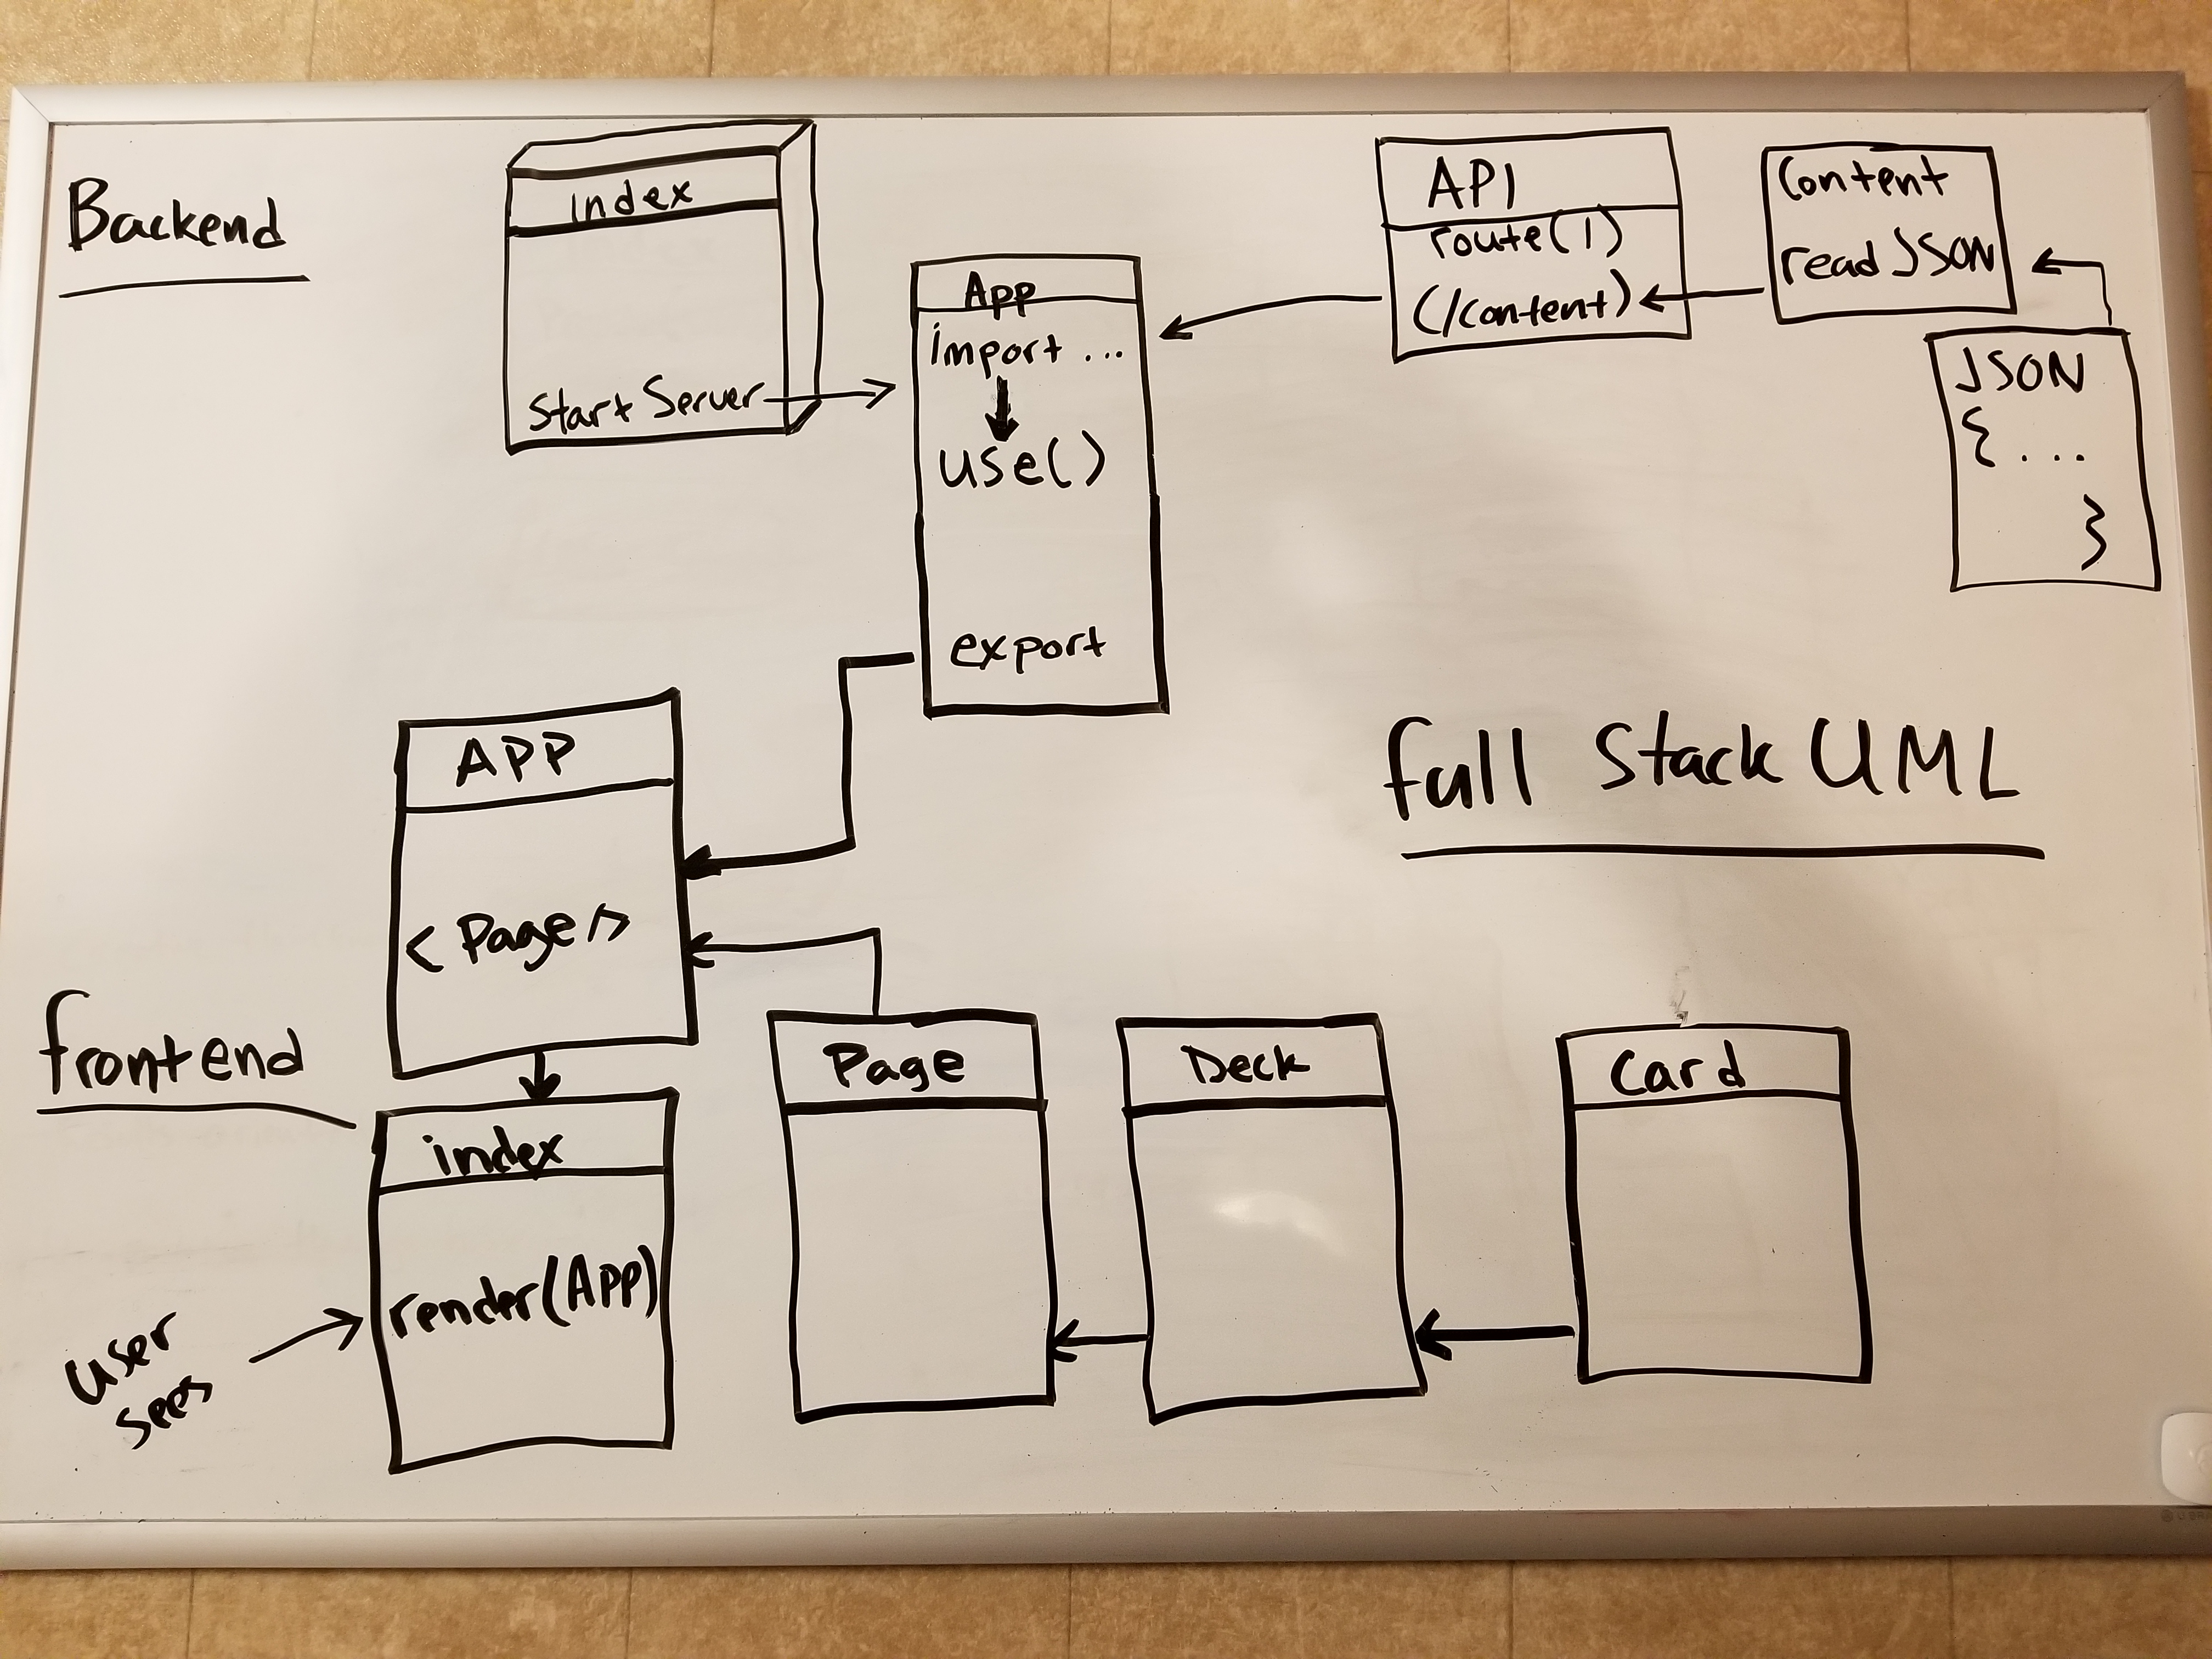 Backend
index
Start Server
App
import ...
use()
export
API
route()
(/content)
Content
read JSON
JSON
{ ...
}
full Stack UML
frontend
APP
<Page/>
index
render(App)
Page
Deck
Card
user
sees